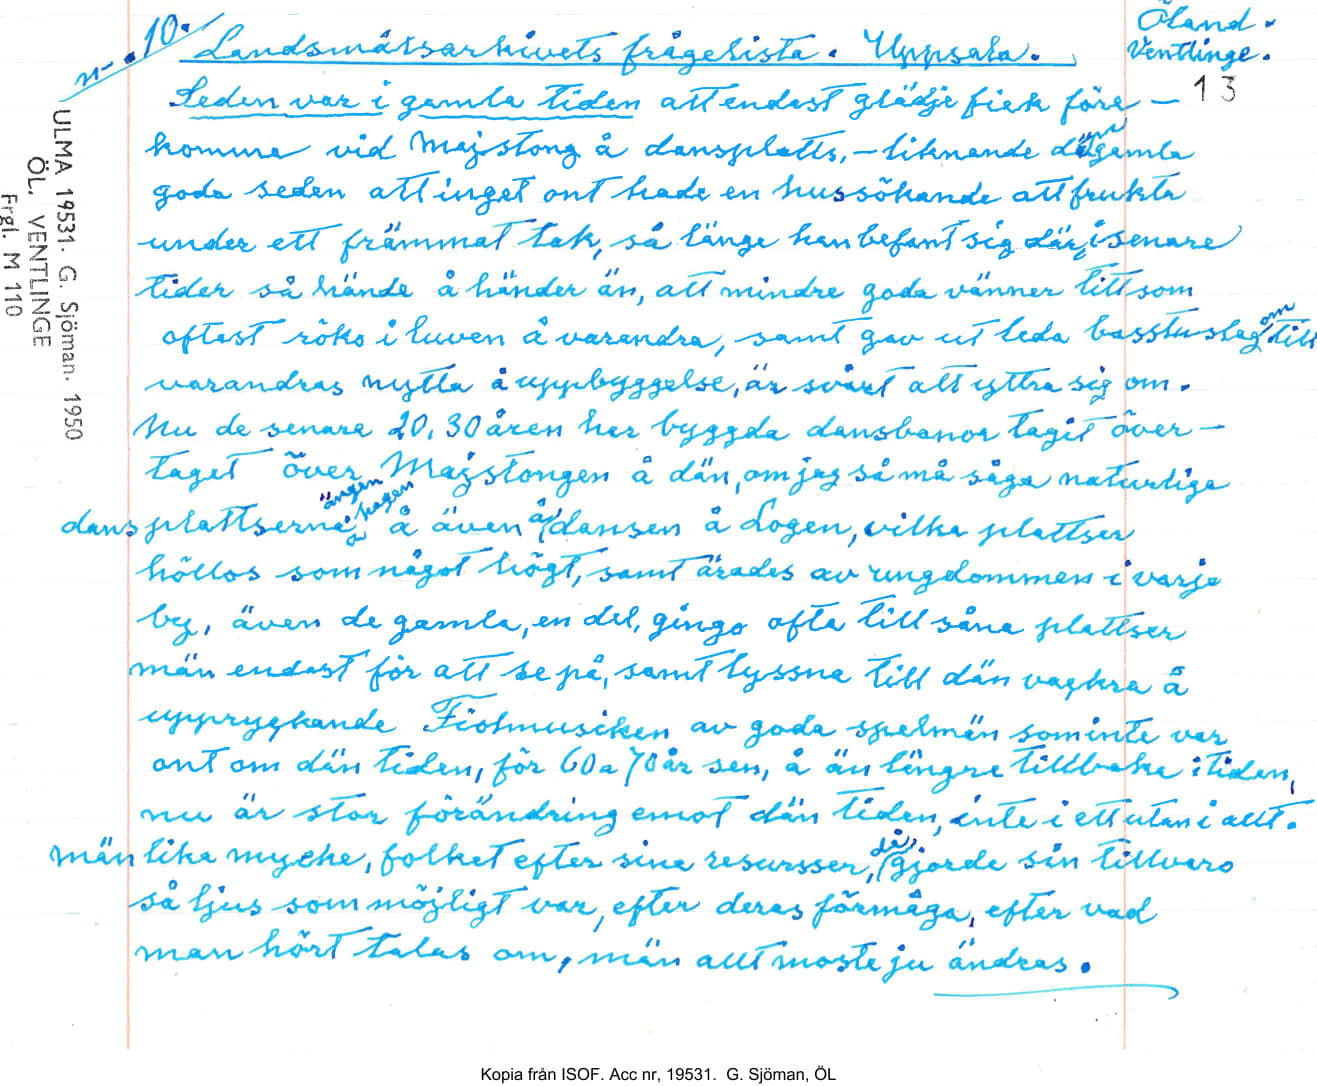 n-. 10. Landsmålsarkivets frågelista. Uppsala.
Öland.
Ventlinge.
13
ULMA 19531. G. Sjöman. 1950
ÖL. VENTLINGE
Frgl. M 110
Seden var i gamla tiden att endast glädje fick före-
komma vid Majstong å dansplatts, - liknande den gamla
goda seden att inget ont hade en hussökande att frukta
under ett främmat tak, så länge han befant sig där, i senare
tider så hände å händer än, att mindre goda vänner titt som
oftast röko i luven å varandra, samt gav ut leda basstuslag, om till
varandras nytta å uppbyggelse, är svårt att yttra sig om.
Nu de senare 20, 30 åren har byggda dansbanor tagit över-
taget över Majstongen å dän, om jag så må säga naturliga
dansplattserna, ängen å hagen å även å dansen å Logen, vilka plattser
höllos som något högt, samt ärades av ungdommen i varje
by, även de gamla, en del, gingo ofta till såna plattser
män endast för att se på, samt lyssna till dän vackra å
uppryckande Fiolmusiken av goda spelmän som inte var
ont om dän tiden, för 60 a 70 år sen, å än längre tillbaka i tiden,
nu är stor förändring emot dän tiden, inte i ett utan i allt.
män lika mycke, folket efter sina resursser, då, gjorde sin tillvaro
så ljus som möjligt var, efter deras förmåga, efter vad
man hört talas om, män allt moste ju ändras.
Kopia från ISOF. Acc nr, 19531. G. Sjöman, ÖL